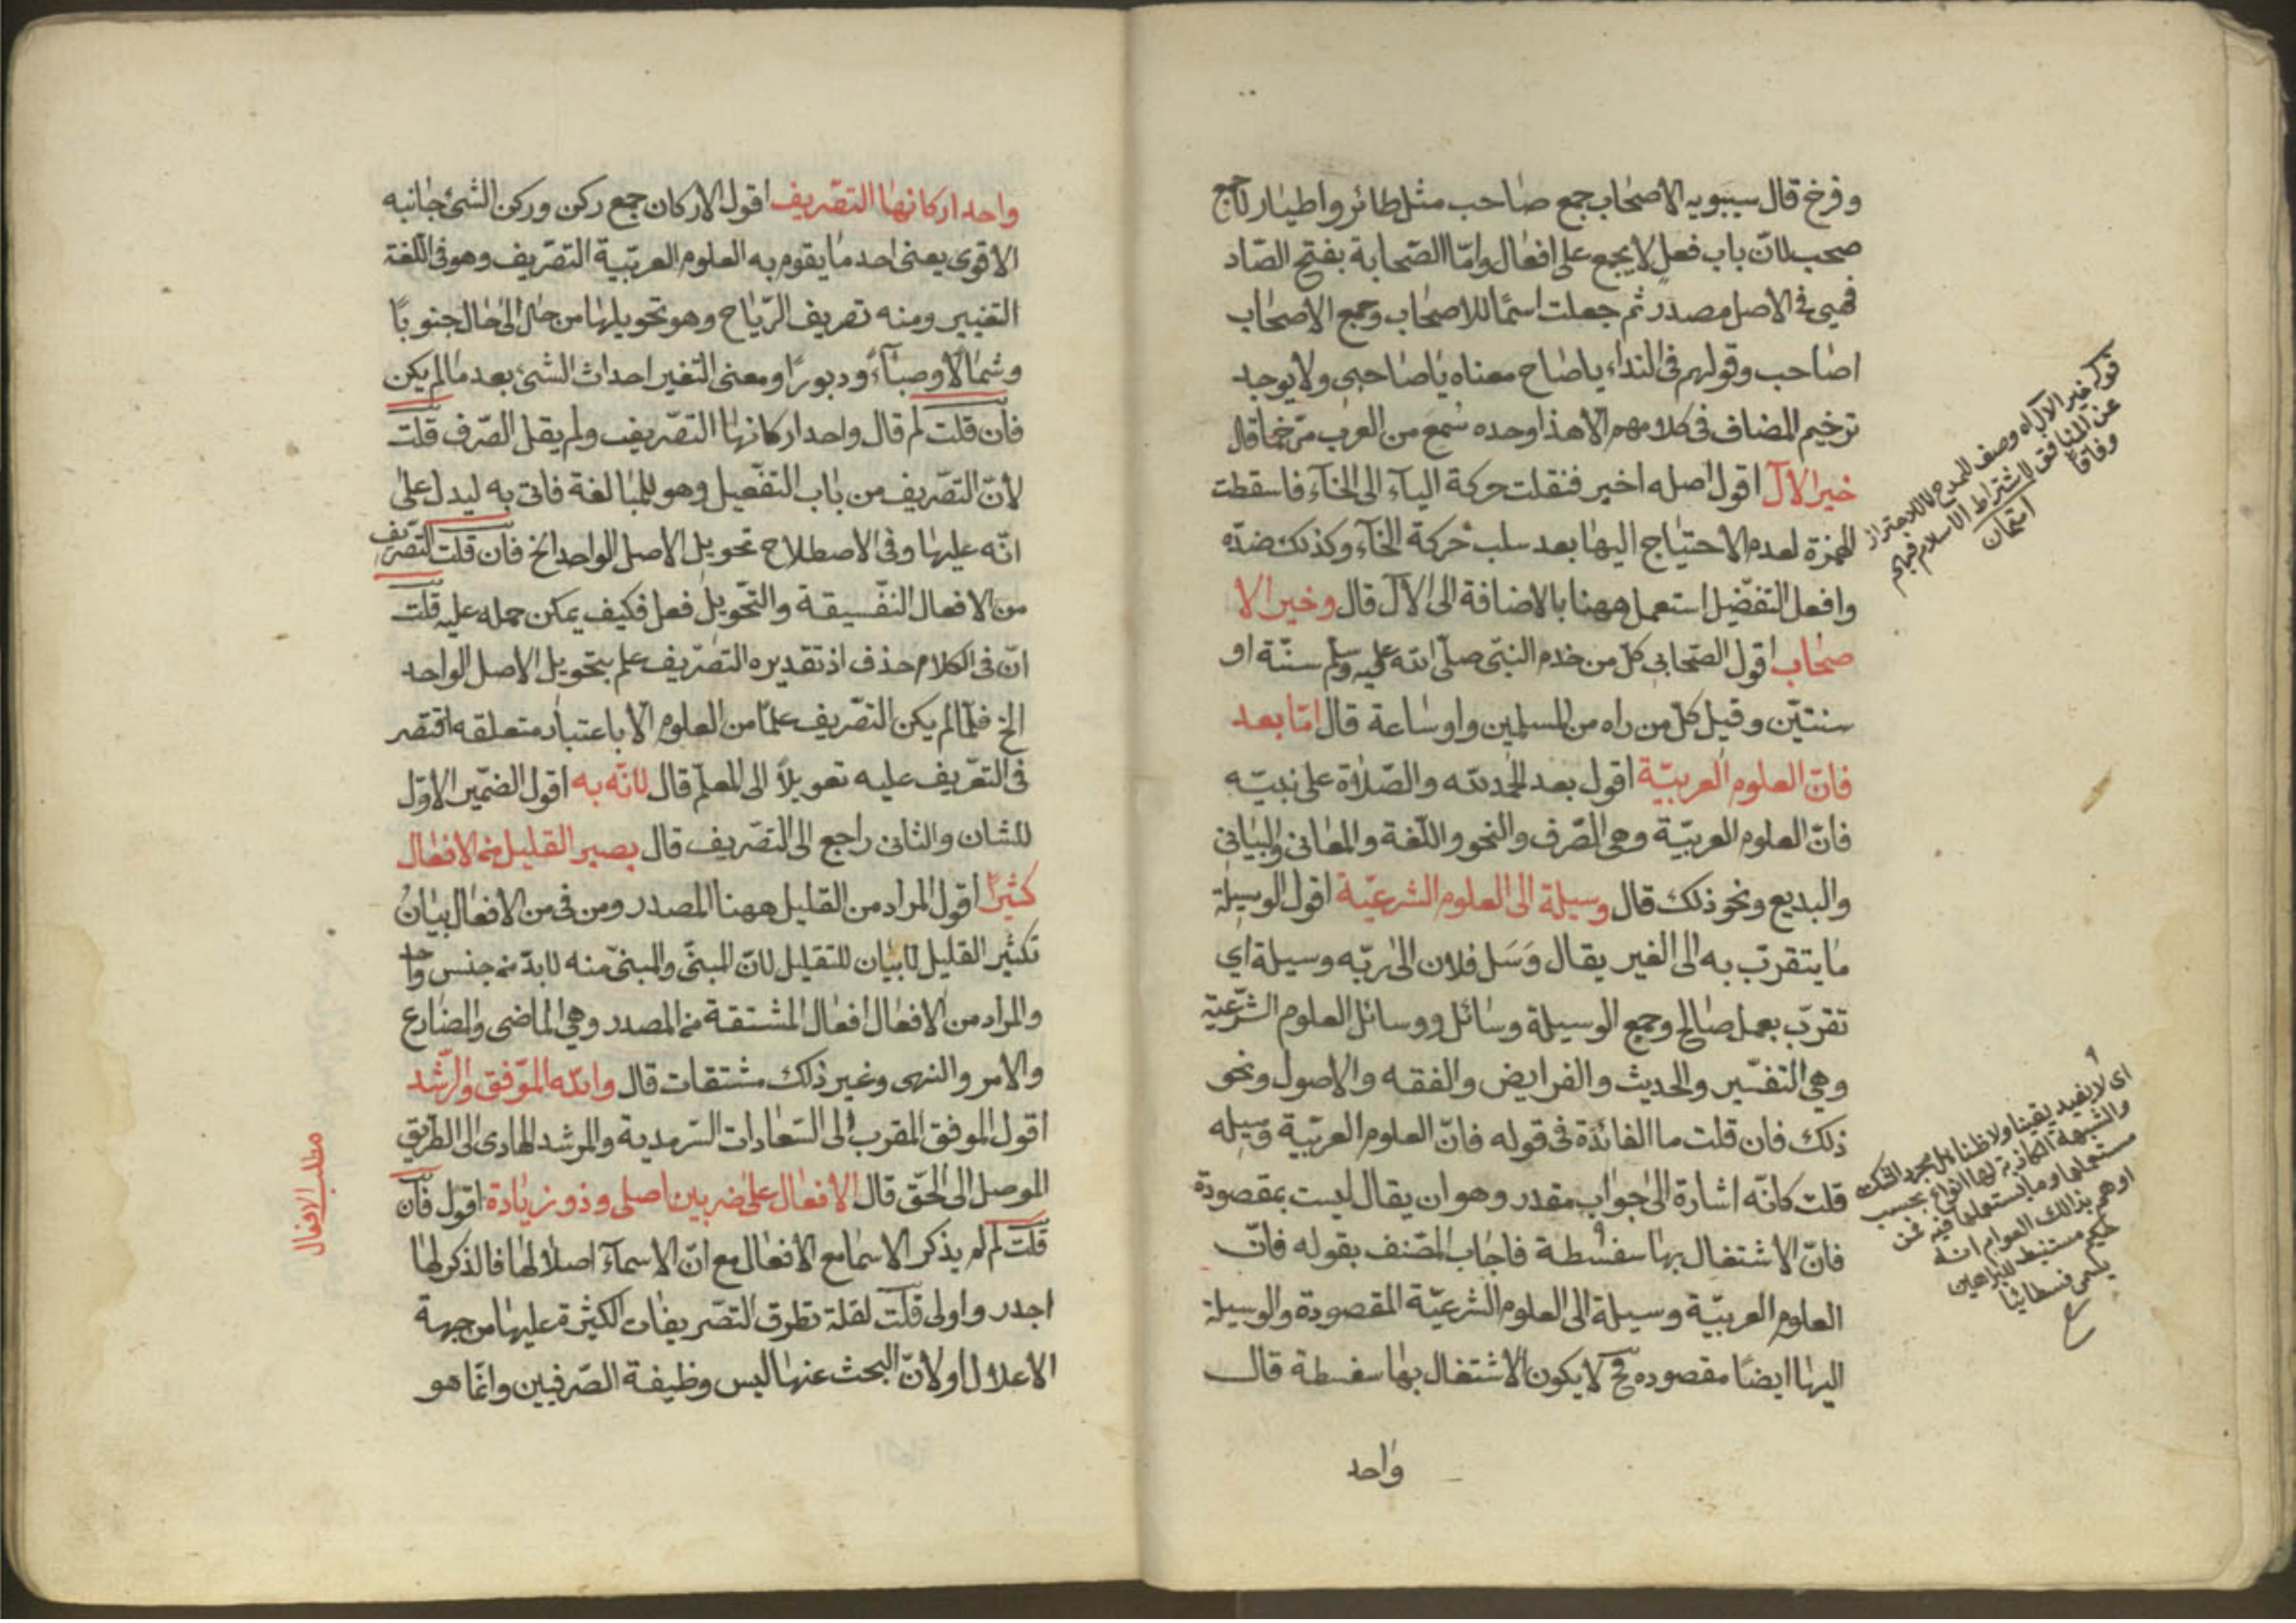 وفرخ قال سيبويه الاصحاب جمع صاحب مثل طائر واطيار لا جمع
صحب لانّ باب فعل لا يجمع على افعال وامّا الصّحابة بفتح الصّاد
فهى فى الاصل مصدر ثم جعلت اسمًا للاصحاب وجمع الاصحاب
اصاحب وقولهم فى النداء ياصاح معناه ياصاحبى ولا يوجد
ترخيم المضاف فى كلامهم الا هذا وحده سُمع من العرب مرخما قال
خير الآل اقول اصله اخير فنقلت حركة اليآء الى الخآء فاسقطت
الهمزة لعدم الاحتياج اليها بعد سلب حركة الخآء وكذلك ضدّه
وافعل التفضّيل استعمل ههنا بالاضافة الى الآل قال وخير الا
صحاب اقول الصّحابى كلّ من خدم النبىّ صلّى الله عليه وسلم سنّة او
سنتيّن وقيل كلّ من راه من المسلمين ولو ساعة قال امّا بعد
فانّ العلوم العربيّة اقول بعد الحمد لله والصّلاة على نبيّه
فانّ العلوم العربيّة وهى الصّرف والنحو واللّغة والمعانى والبيانى
والبديع ونحو ذلك قال وسيلة الى العلوم الشرعيّة اقول الوسيلة
ما يتقرّب به الى الغير يقال وَسَل فلان الى ربّه وسيلة اى
تقرّب بعمل صالح وجمع الوسيلة وسائل ووسائل العلوم الشّرعيّة
وهى التفسّير والحديث والفرايض والفقه والاصول ونحو
ذلك فان قلت ما الفائدة فى قوله فانّ العلوم العربيّة وسيله
قلت كانّه اشارة الى جواب مقدر وهو ان يقال ليست بمقصودة
فانّ الاشتغال بها سفسطة فاجاب المصّنف بقوله فانّ
العلوم العربيّة وسيلة الى العلوم الشرعيّة المقصودة والوسيلة
اليها ايضًا مقصوده فح لا يكون الاشتغال بها سفسطة قال
واحد
قوله خير الآل اه وصف للمدح لا للاحتراز
عن المنافق لاشتراط الاسلام فيهم
وفاقًا
امتحان
اى لا يفيد يقينا ولا ظنا بل مجرد الشك
والشبهة الكاذبة لها انواع بحسب
مستعملها وما يستعملها فيه فمن
اوهم بذلك العوام انه
حكيم مستنبط للبراهين
يسمى فسطائيا
واحد اركانها التصّريف اقول الاركان جمع ركن وركن الشئ جانبه
الاقوى يعنى احد ما يقوم به العلوم العربيّة التصّريف وهو فى اللّغة
التغيير ومنه تصريف الرّياح وهو تحويلها من حال الى حال جنوبًا
وشمالًا وصبآءً ودبورًا ومعنى التغير احداث الشئ بعد ما لم يكن
فان قلت لم قال واحد اركانها التصّريف ولم يقل الصّرف قلت
لانّ التصّريف من باب التفعّيل وهو للمبالغة فاتى به ليدل على
انّه عليها وفى الاصطلاح تحويل الاصل الواحد الخ فان قلت التّصريف
من الافعال النفّسيقة والتّحويل فعل فكيف يمكن حمله عليه قلت
انّ فى الكلام حذف اذ تقديره التصّريف علم بتحويل الاصل الواحد
الخ فلمّا لم يكن التصّريف علمًا من العلوم الا باعتبار متعلقه اقتصر
فى التعّريف عليه تعويلاً الى المعلّم قال لانّه به اقول الضمّير الاوّل
للشان والثانى راجع الى التصّريف قال يصير القليل من الافعال
كثيرًا اقول المراد من القليل ههنا المصدر ومن فى من الافعال بيانُ
تكثير القليل لا بيان للتقليل لانّ المبنّى والمبنىّ منه لابدّ من جنس واحد
والمراد من الافعال افعال المشتقة من المصدر وهى الماضى والمضارع
والامر والنهى وغير ذلك مشتقات قال والله الموّفق والرشّد
اقول الموفق المقرب الى السّعادات السّرمدية والمرشد الهادى الى الطريق
الموصل الى الحّق قال الافعال على ضربين اصلى وذو زيادة اقول فان
قلت لم لم يذكر الاسما مع الافعال مع انّ الاسمآء اصلا لها فالذكر لها
اجدر واولى قلت لقلة تطرق التصّريفات الكثيرة عليها من جهة
الاعلال اولانّ البحث عنها ليس وظيفة الصّرفيين وانّما هو
مطلب الافعال